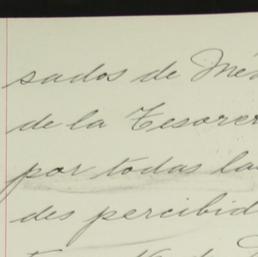 sados de Mé
de la Tesorer
por todas la
des percibid